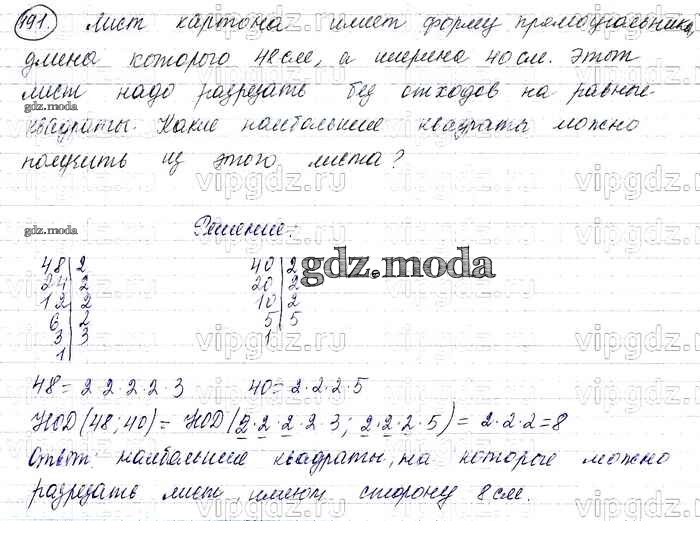 191. Лист картона имеет форму прямоугольника,
длина которого 48 см, а ширина 40 см. Этот
лист надо разрезать без отходов на равные
gdz.moda
квадраты. Какие наибольшие квадраты можно
получить из этого листа?
vipgdz.ru vipgdz.ru vipgdz.ru
gdz.moda Решение:
48|2 40|2
24|2 20|2
gdz.moda
12|2 10|2
6|2 5|5
3|3 1
1
vipgdz.ru vipgdz.ru vipgdz.ru
48 = 2·2·2·2·3 40 = 2·2·2·5
НОД(48;40) = НОД(2·2·2·2·3; 2·2·2·5) = 2·2·2=8
vipgdz.ru vipgdz.ru vipgdz.ru
Ответ: наибольшие квадраты, на которые можно
разрезать лист, имеют сторону 8 см.
vipgdz.ru vipgdz.ru vipgdz.ru